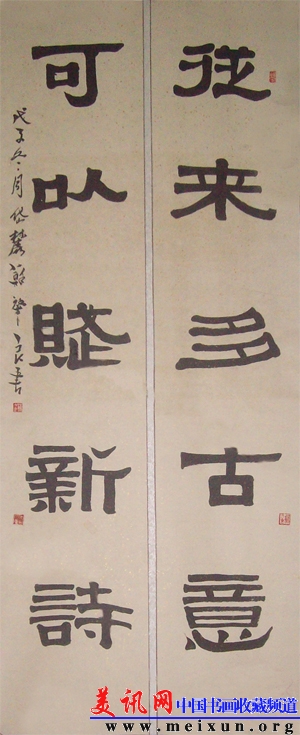 從来多古意
可以賦新詩
戊子冬月岱麓
美讯网 中国书画收藏频道
www.meixun.org